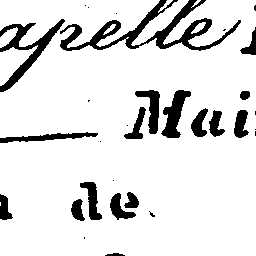 apelle
Mai
de